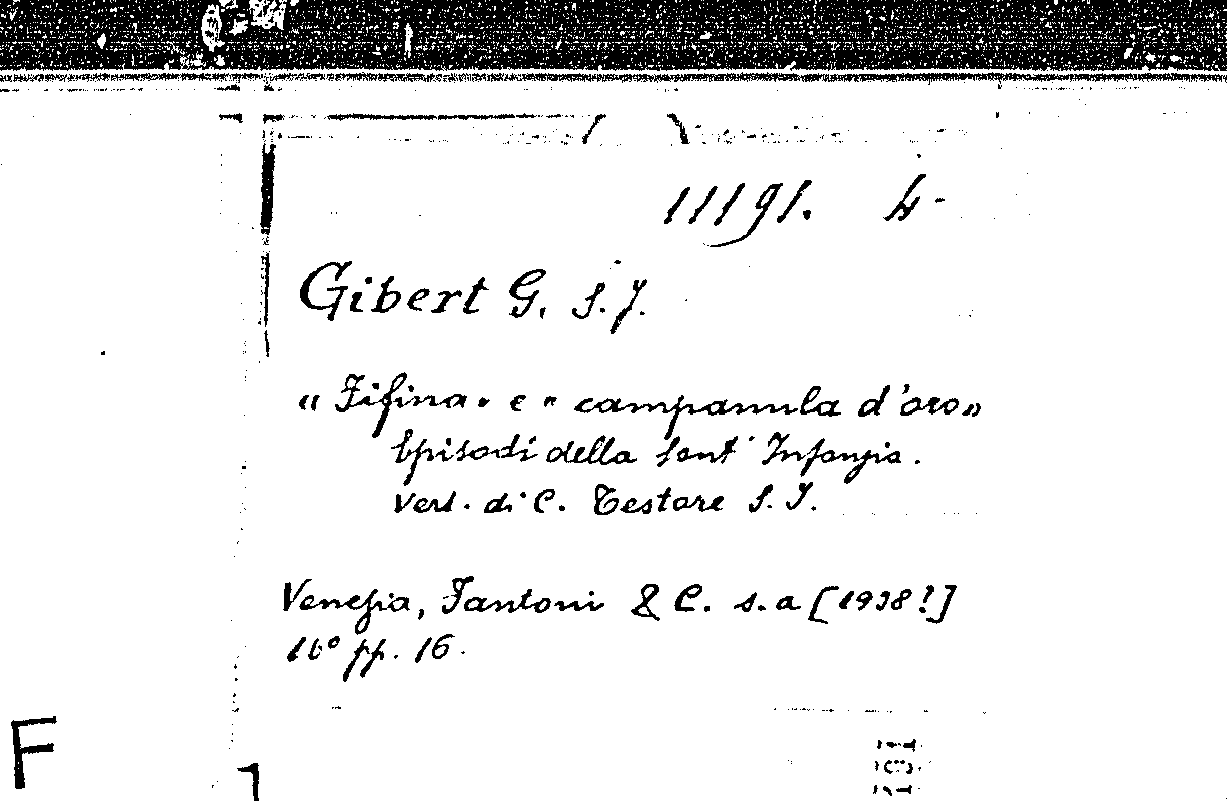 11191. 4-
Gibert G. S.J.
« Fifina » e « campanula d'oro »
Episodi della Sant' Infanzia.
Vers. di C. Testore S.J.
Venezia, Fantoni & C. s.a [1938?]
16° pp. 16.
F